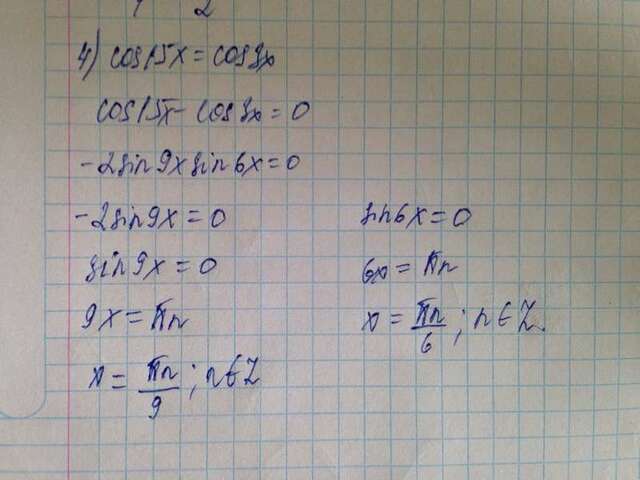 4) cos15x = cos3x
cos15x - cos3x = 0
-2sin9xsin6x = 0
-2sin9x = 0
sin9x = 0
9x = πn
x = πn/9 ; n∈Z
sin6x = 0
6x = πn
x = πn/6 ; n∈Z.